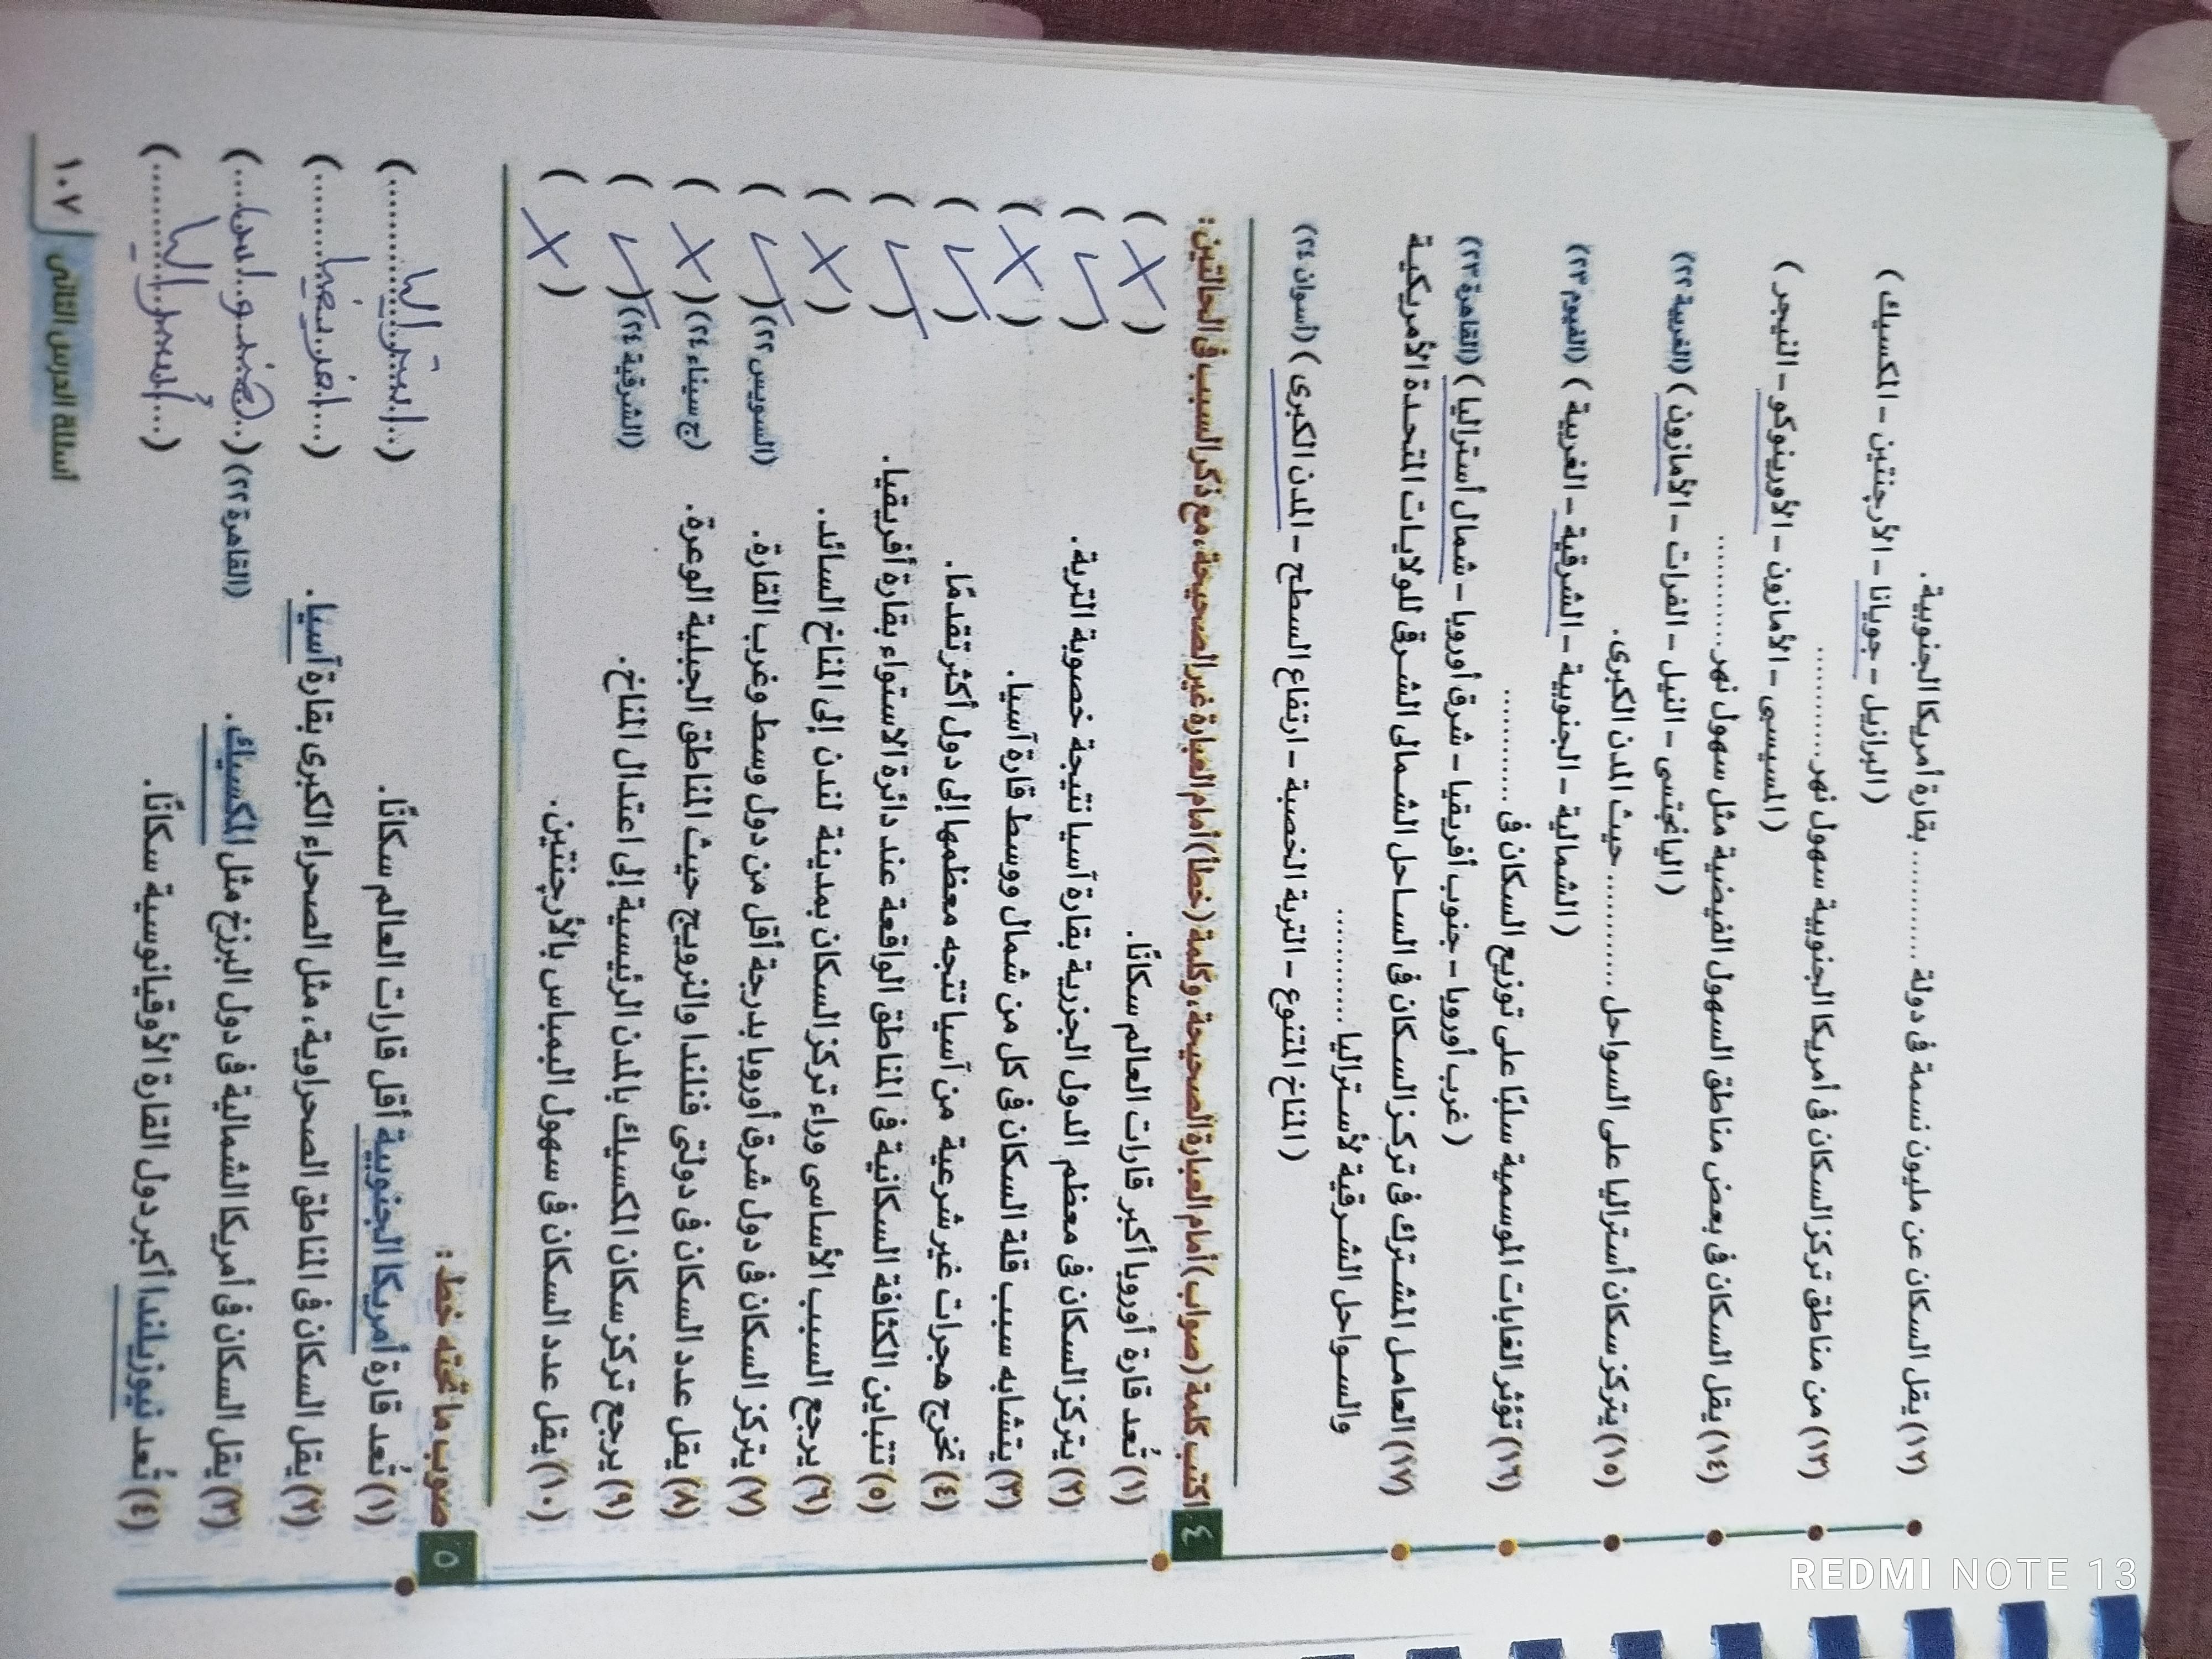 (١٢) يقل السكان عن مليون نسمة فى دولة .......... بقارة أمريكا الجنوبية.
( البرازيل – جويانا – الأرجنتين – المكسيك )
(١٣) من مناطق تركز السكان فى أمريكا الجنوبية سهول نهر ..........
( المسيسبى – الأمازون – الأورينوكو – النيجر )
(١٤) يقل السكان فى بعض مناطق السهول الفيضية مثل سهول نهر ..........
( اليانجتسى – النيل – الفرات – الأمازون ) (الغربية ٢٢)
(١٥) يتركز سكان أستراليا على السواحل .......... حيث المدن الكبرى.
( الشمالية – الجنوبية – الشرقية – الغربية ) (الفيوم ٢٣)
(١٦) تؤثر الغابات الموسمية سلبًا على توزيع السكان فى ..........
( غرب أوروبا – جنوب أفريقيا – شرق أوروبا – شمال أستراليا ) (القاهرة ٢٣)
(١٧) العامل المشترك فى تركز السكان فى الساحل الشمالى الشرقى للولايات المتحدة الأمريكية
والسواحل الشرقية لأستراليا ..........
( المناخ المتنوع – التربة الخصبة – ارتفاع السطح – المدن الكبرى ) (أسوان ٢٤)
٤ اكتب كلمة (صواب) أمام العبارة الصحيحة، وكلمة (خطأ) أمام العبارة غير الصحيحة، مع ذكر السبب فى الحالتين :
(١) تُعد قارة أوروبا أكبر قارات العالم سكانًا. ( X )
(٢) يتركز السكان فى معظم الدول الجزرية بقارة آسيا نتيجة خصوبة التربة. ( ✓ )
(٣) يتشابه سبب قلة السكان فى كل من شمال ووسط قارة آسيا. ( X )
(٤) تخرج هجرات غير شرعية من آسيا تتجه معظمها إلى دول أكثر تقدمًا. ( ✓ )
(٥) تتباين الكثافة السكانية فى المناطق الواقعة عند دائرة الاستواء بقارة أفريقيا. ( ✓ )
(٦) يرجع السبب الأساسى وراء تركز السكان بمدينة لندن إلى المناخ السائد. ( X )
(٧) يتركز السكان فى دول شرق أوروبا بدرجة أقل من دول وسط وغرب القارة. (السويس ٢٢) ( ✓ )
(٨) يقل عدد السكان فى دولتى فنلندا والنرويج حيث المناطق الجبلية الوعرة. (ج سيناء ٢٤) ( X )
(٩) يرجع تركز سكان المكسيك بالمدن الرئيسية إلى اعتدال المناخ. (الشرقية ٢٤) ( ✓ )
(١٠) يقل عدد السكان فى سهول البمباس بالأرجنتين. ( X )
٥ صوب ما تحته خط :
(١) تُعد قارة أمريكا الجنوبية أقل قارات العالم سكانًا. (..استراليا..........)
(٢) يقل السكان فى المناطق الصحراوية، مثل الصحراء الكبرى بقارة آسيا. (...افريقيا.......)
(٣) يقل السكان فى أمريكا الشمالية فى دول البرزخ مثل المكسيك. (القاهرة ٢٢) (..هندوراس....)
(٤) تُعد نيوزيلندا أكبر دول القارة الأوقيانوسية سكانًا. (...أستراليا.......)
١٠٧ أسئلة الدرس الثانى
REDMI NOTE 13